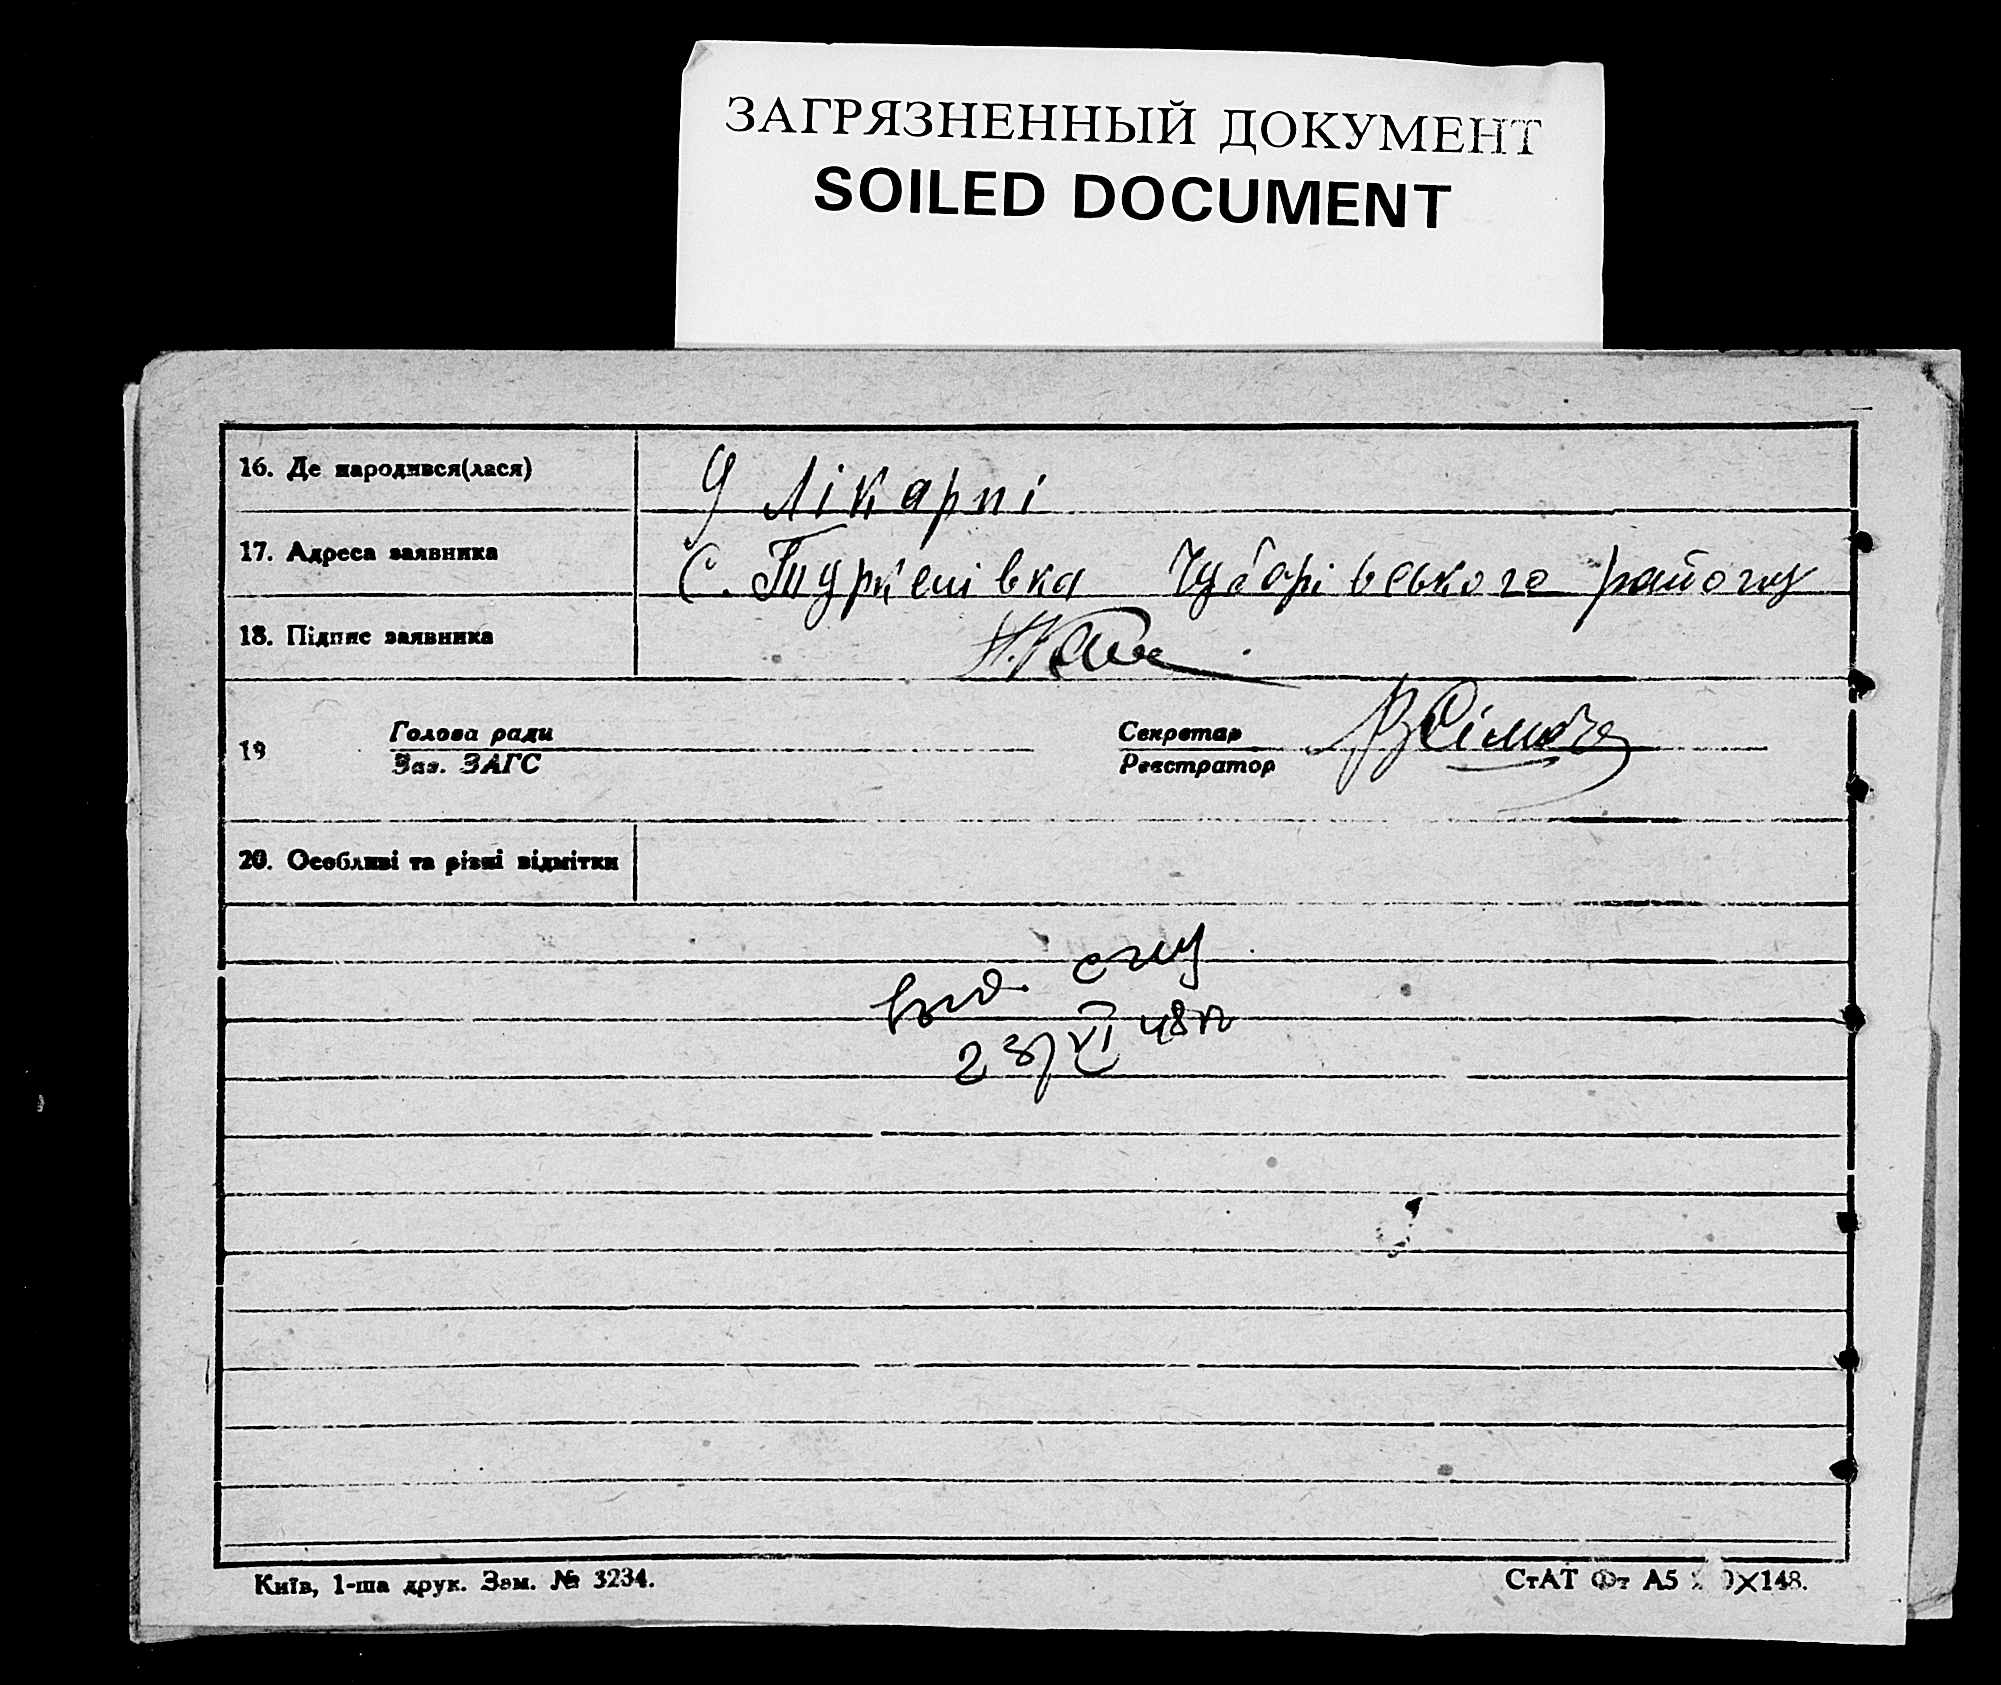 ЗАГРЯЗНЕННЫЙ ДОКУМЕНТ
SOILED DOCUMENT
16. Де народився(лася) У лікарні
17. Адреса заявника С. Туркенівка Чубарівського району
18. Підпис заявника
19 Голова ради Секретар
Зав. ЗАГС Реєстратор
20. Особливі та різні відмітки
23/VI 48
Київ, 1-ша друк. Зам. № 3234.
СтАТ Фт А5 ×148.